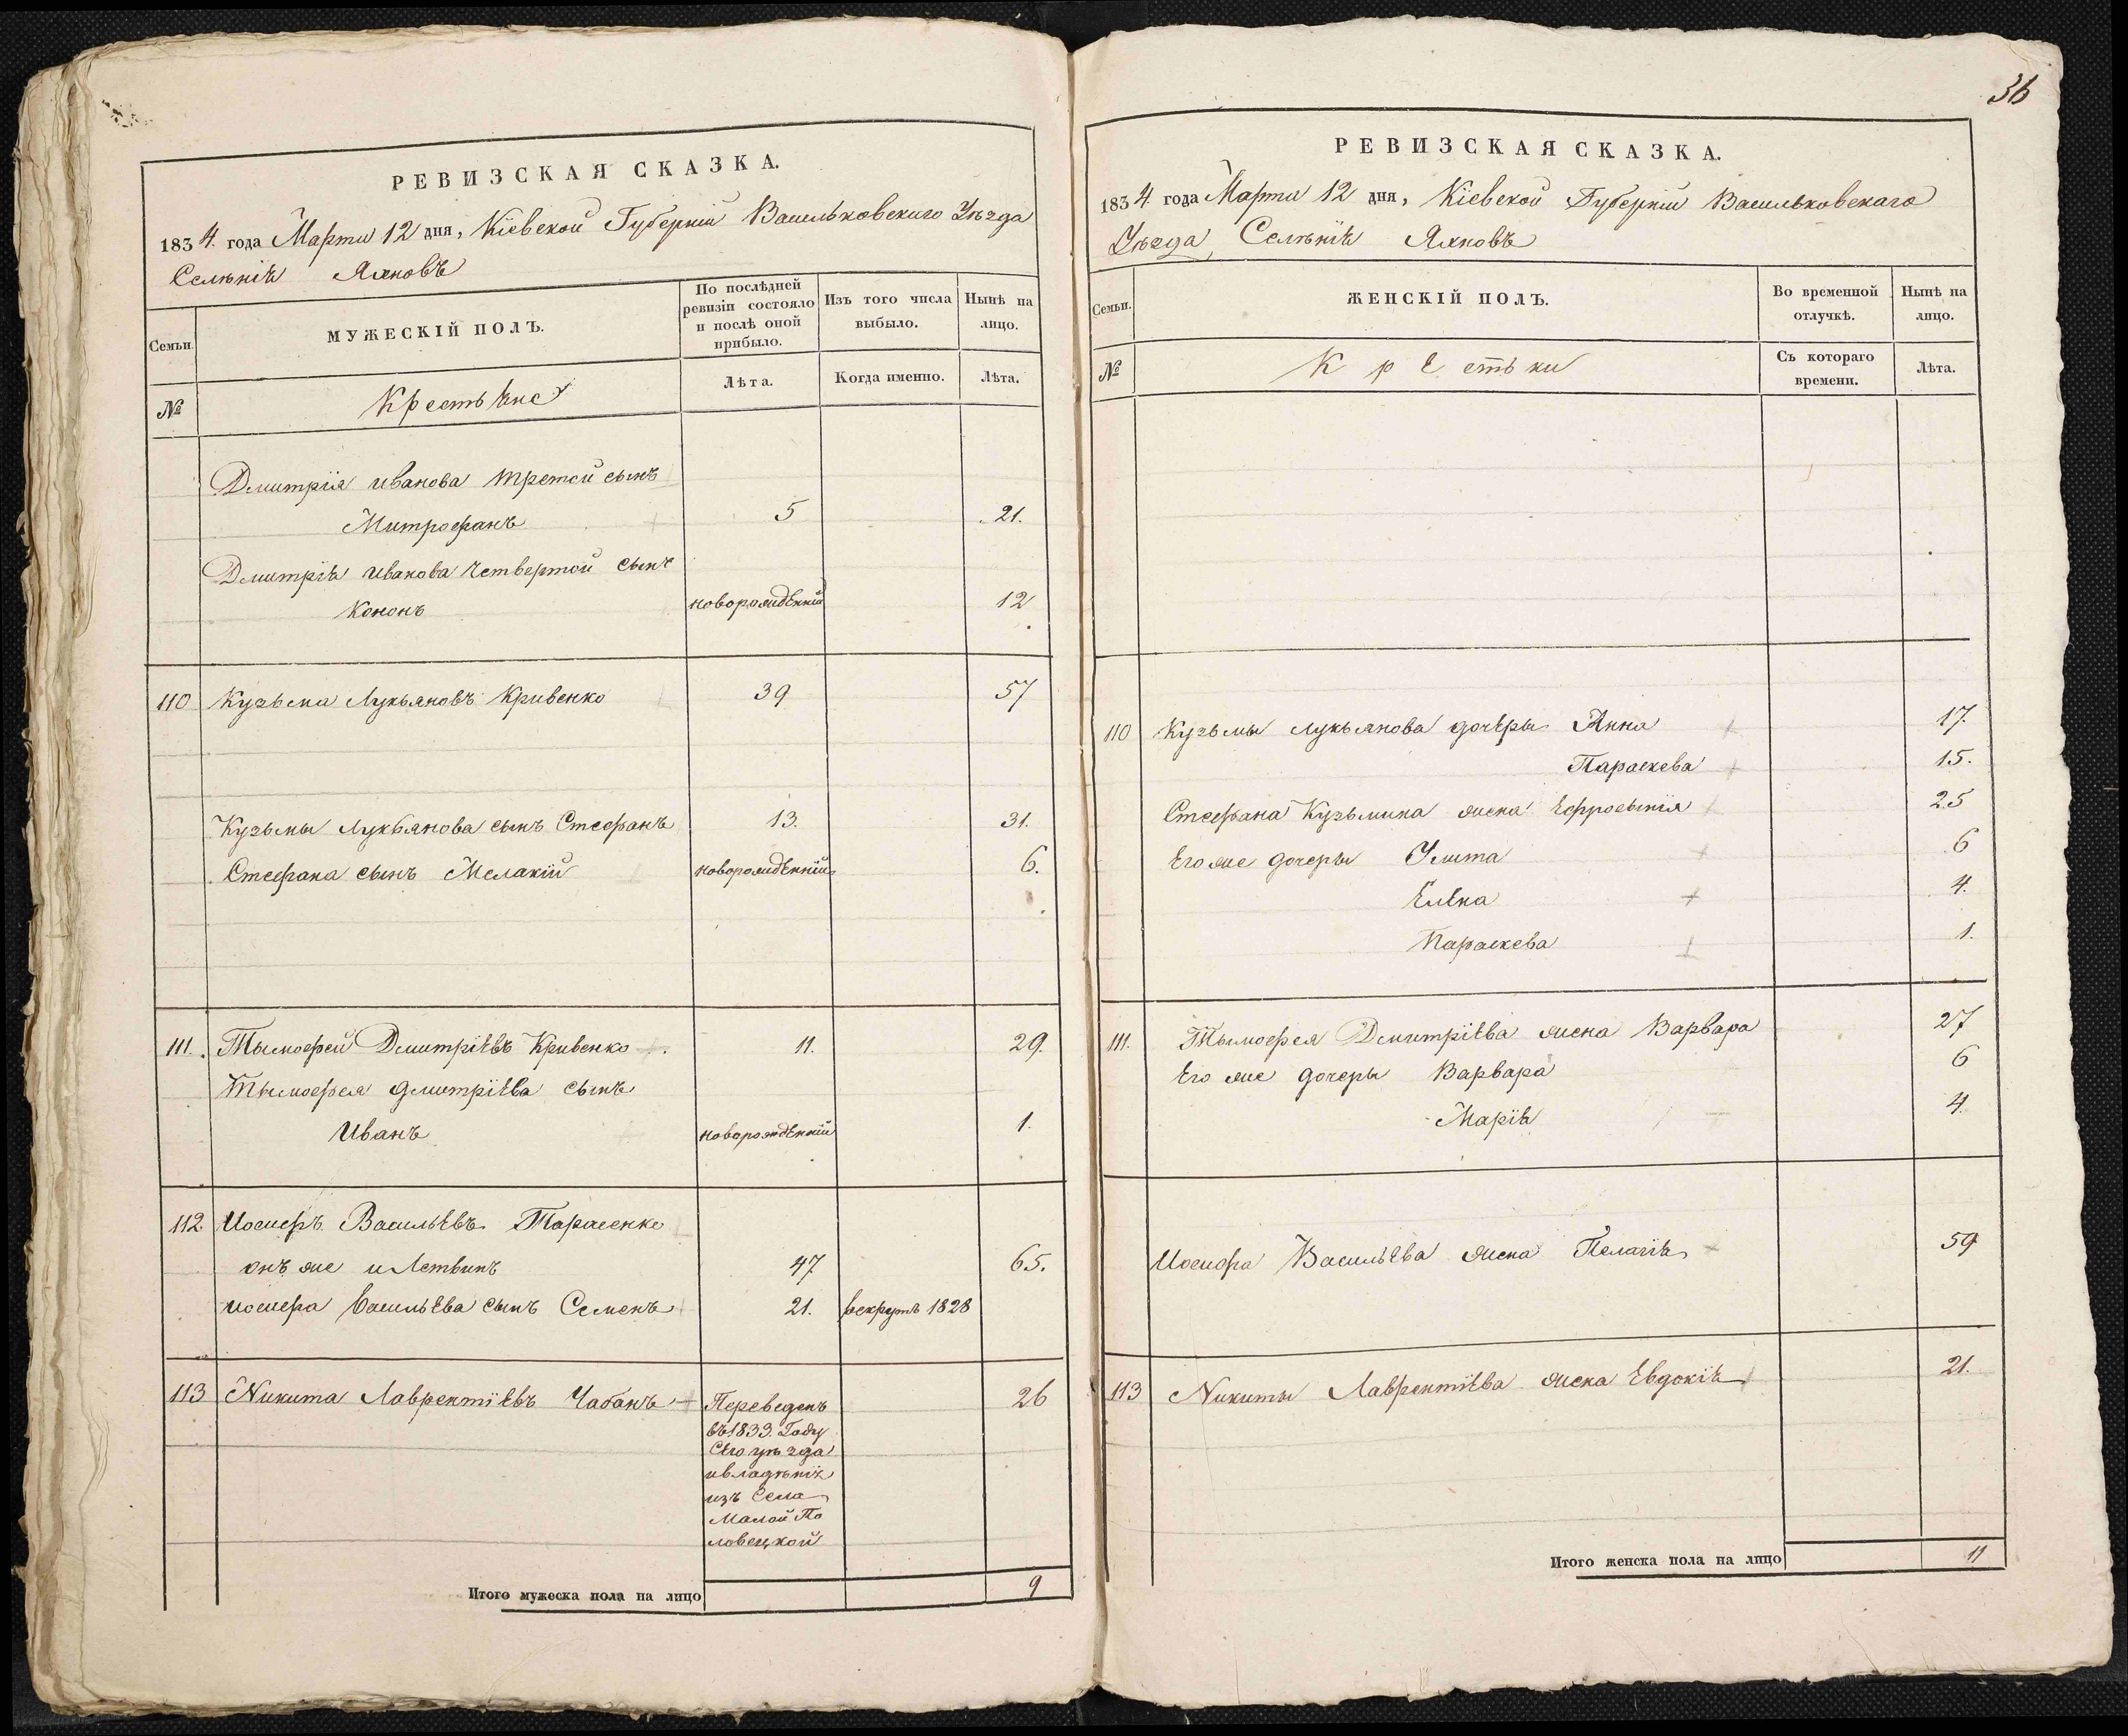 36
РЕВИЗСКАЯ СКАЗКА.
1834. года Марта 12 дня, Кіевской Губерніи Васильковскаго Уѣзда
Селѣнія Яхновъ
Семьи.
МУЖЕСКІЙ ПОЛЪ.
По послѣдней ревизіи состояло и послѣ оной прибыло.
Изъ того числа выбыло.
Нынѣ на лицо.
№
Крестьяне
Лѣта.
Когда именно.
Лѣта.
Дмитрія иванова третой сынъ
Митрофанъ 5 21.
Дмитрія иванова четвертой сынъ
Кононъ новорожденній 12
110 Кузьма Лукьяновъ Кривенко 39 57
Кузьмы Лукьянова сынъ Стефанъ 13. 31.
Стефана сынъ Мелакій новорожденній 6.
111. Тымофей Дмитріевъ Кривенко 11. 29.
Тымофея дмитріева сынъ
Иванъ новорожденній 1.
112 Иосифъ Васильевъ Тарасенко
онъ же и Летвинъ 47 65.
иосифа васильева сынъ Семенъ 21. рекрутъ 1828
113 Никита Лаврентіевъ Чабанъ Переведенъ 26
въ 1833. Году
сего уѣзда
и владѣнія
изъ Села
Малой По
ловецкой
Итого мужеска пола на лицо 9
РЕВИЗСКАЯ СКАЗКА.
1834 года Марта 12 дня, Кіевской Губерніи Васильковскаго
Уѣзда, Селѣнія Яхновъ
Семьи.
ЖЕНСКІЙ ПОЛЪ.
Во временной отлучкѣ.
Нынѣ на лицо.
№
Крестьки
Съ котораго времени.
Лѣта.
110 Кузьмы лукьянова дочеры Анна 17.
Параскева 15.
Стефана Кузьмина жена Ефросынія 25
Его же дочеры Улита 6
Елена 4.
Параскева 1.
111. Тымофея Дмитріева жена Варвара 27
Его же дочеры Варвара 6
Марія 4.
Иосифа Васильева жена Пелагія 59
113 Никиты Лаврентіева жена Евдокія 21.
Итого женска пола на лицо 11